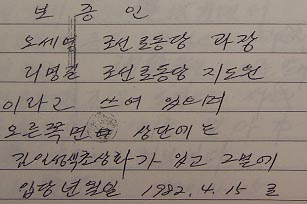 보 증 인
오세영 조선로동당 과장
리명길 조선로동당 지도원
이라고 쓰여 있으며
오른쪽면 상단에는
김일성색초상화가 있고 그밑에
입당년월일 1982. 4. 15 로